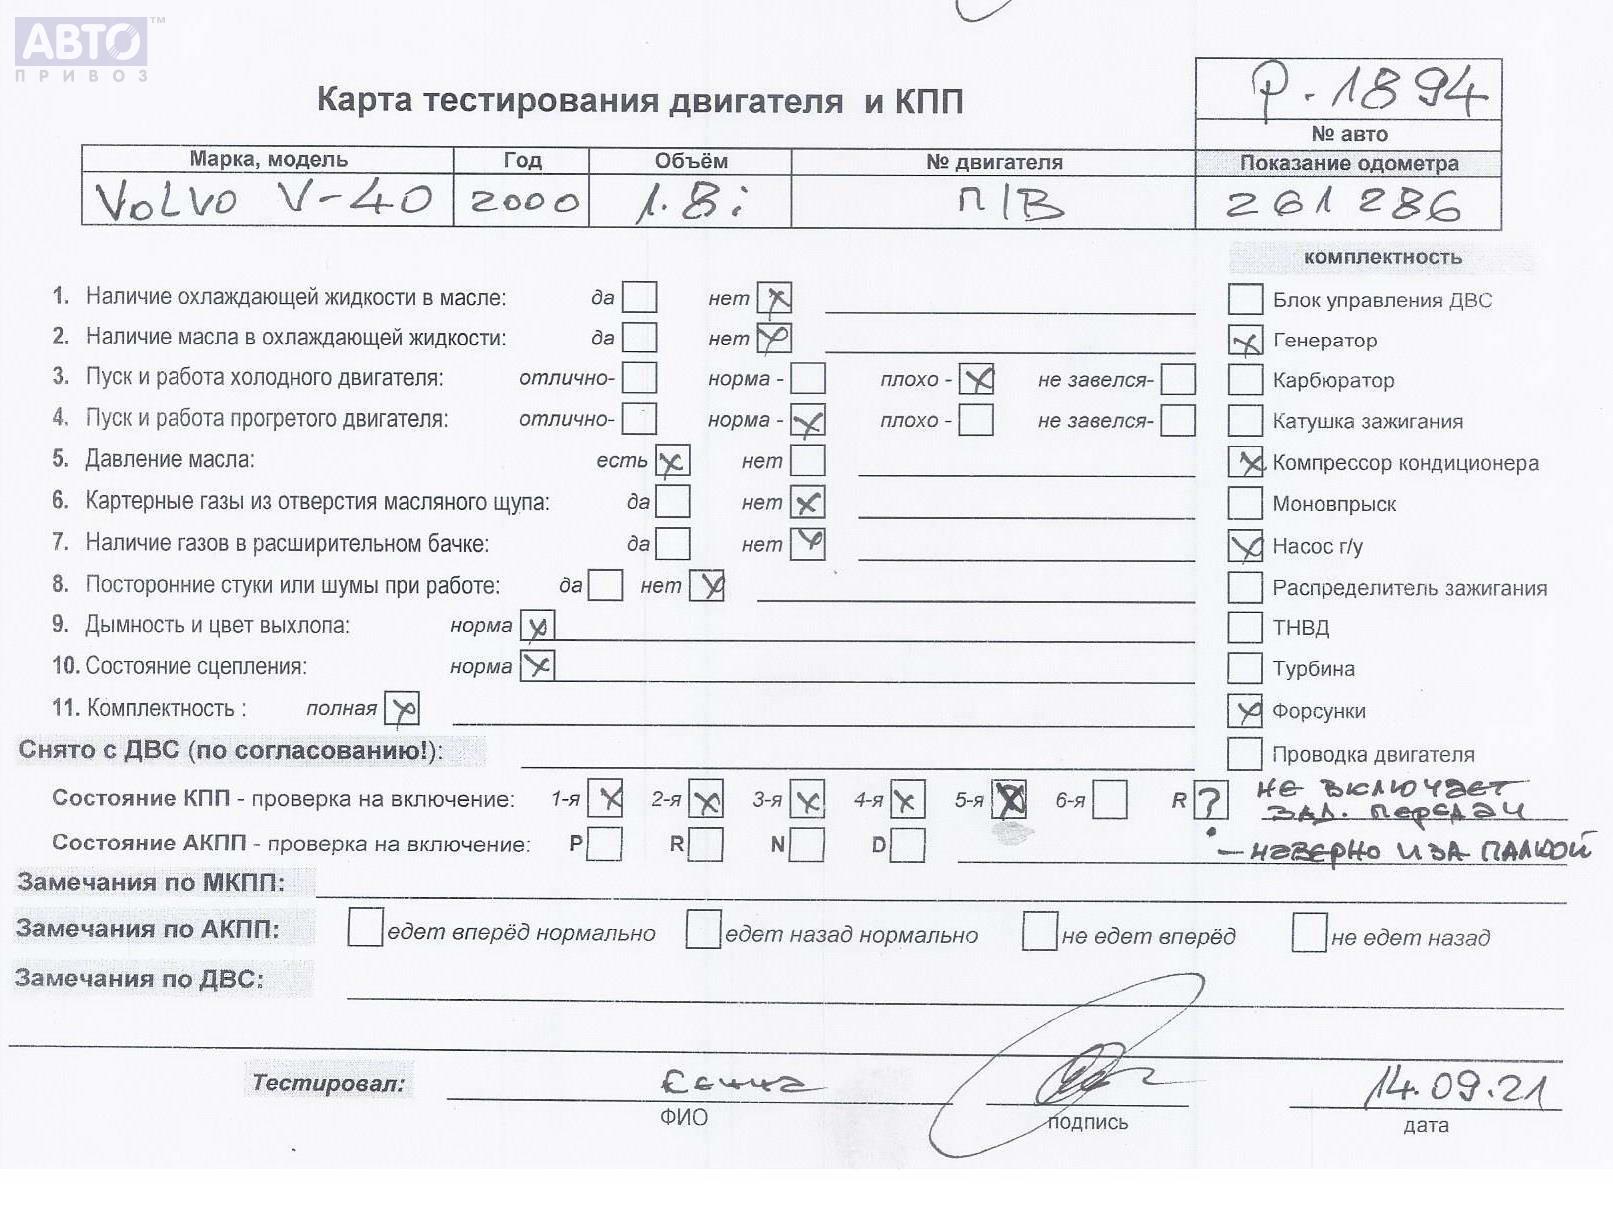 АВТО™
ПРИВОЗ
Карта тестирования двигателя и КПП
Р.1894
№ авто
Марка, модель Год Объём № двигателя Показание одометра
VOLVO V-40 2000 1.8i П/В 261 286
комплектность
1. Наличие охлаждающей жидкости в масле: да нет x Блок управления ДВС
2. Наличие масла в охлаждающей жидкости: да нет x x Генератор
3. Пуск и работа холодного двигателя: отлично- норма - плохо - x не завелся- Карбюратор
4. Пуск и работа прогретого двигателя: отлично- норма - x плохо - не завелся- Катушка зажигания
5. Давление масла: есть x нет x Компрессор кондиционера
6. Картерные газы из отверстия масляного щупа: да нет x Моновпрыск
7. Наличие газов в расширительном бачке: да нет x x Насос г/у
8. Посторонние стуки или шумы при работе: да нет x Распределитель зажигания
9. Дымность и цвет выхлопа: норма x ТНВД
10. Состояние сцепления: норма x Турбина
11. Комплектность : полная x x Форсунки
Снято с ДВС (по согласованию!): Проводка двигателя
Состояние КПП - проверка на включение: 1-я x 2-я x 3-я x 4-я x 5-я x 6-я R ? НЕ ВКЛЮЧАЕТ
ЗАД. ПЕРЕДАЧ
Состояние АКПП - проверка на включение: P R N D – НАВЕРНО ИЗА ПАЛКОЙ
Замечания по МКПП:
Замечания по АКПП: едет вперёд нормально едет назад нормально не едет вперёд не едет назад
Замечания по ДВС:
Тестировал: 14.09.21
ФИО подпись дата